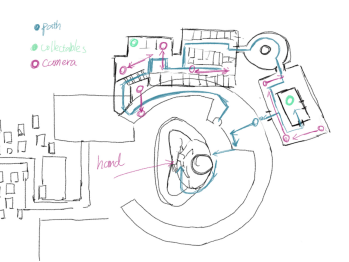 path
collectables
camera
hand